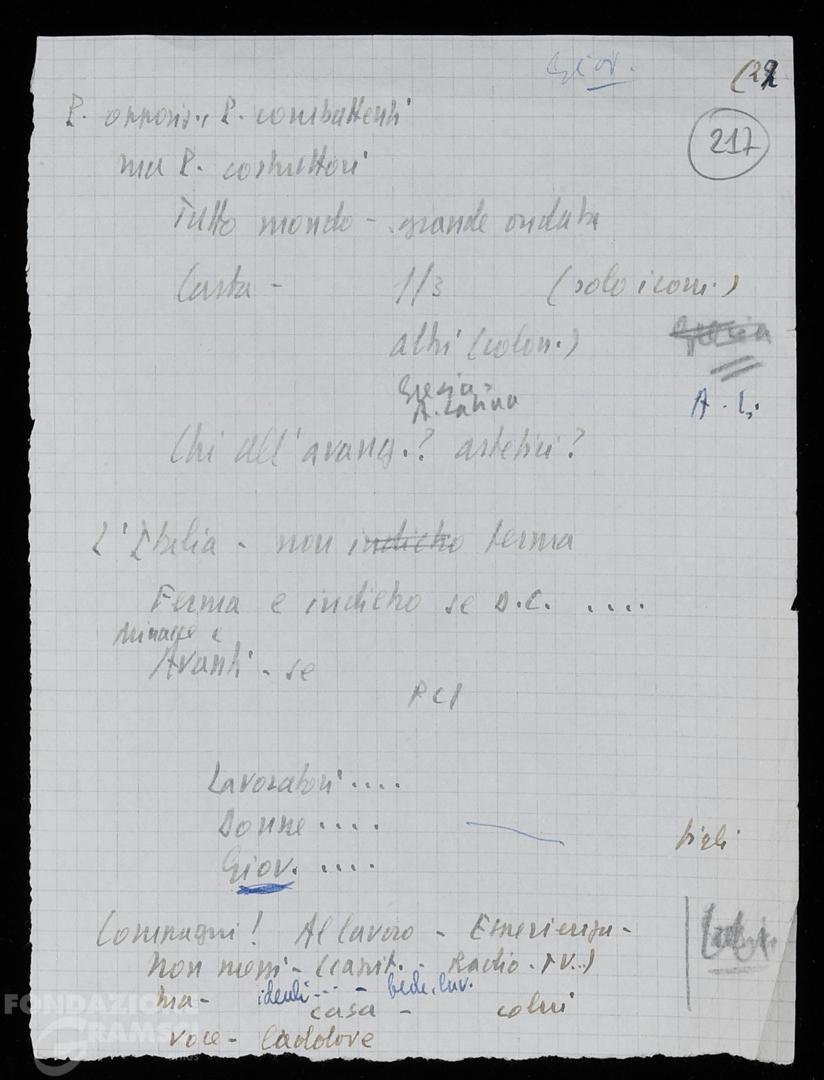 Giov.
(22
217
P. opposiz., P. combattenti
ma P. costruttori
Tutto mondo - grande ondata
Carta - 1/3 (solo i com.)
altri (colon.) Grecia
Grecia -
A. Latina A. L.
Chi all'avang.?
L'Italia - non indietro ferma
Ferma e indietro se D.C. ....
Minacce e
Avanti - se
PCI
Lavoratori ....
Donne .... figli
Giov. ....
Compagni! Al lavoro - Esperienza -
Non mezzi - (capit. - Radio. TV..)
ma - ideali ... -
casa -
voce -
FONDAZIONE
GRAMSCI